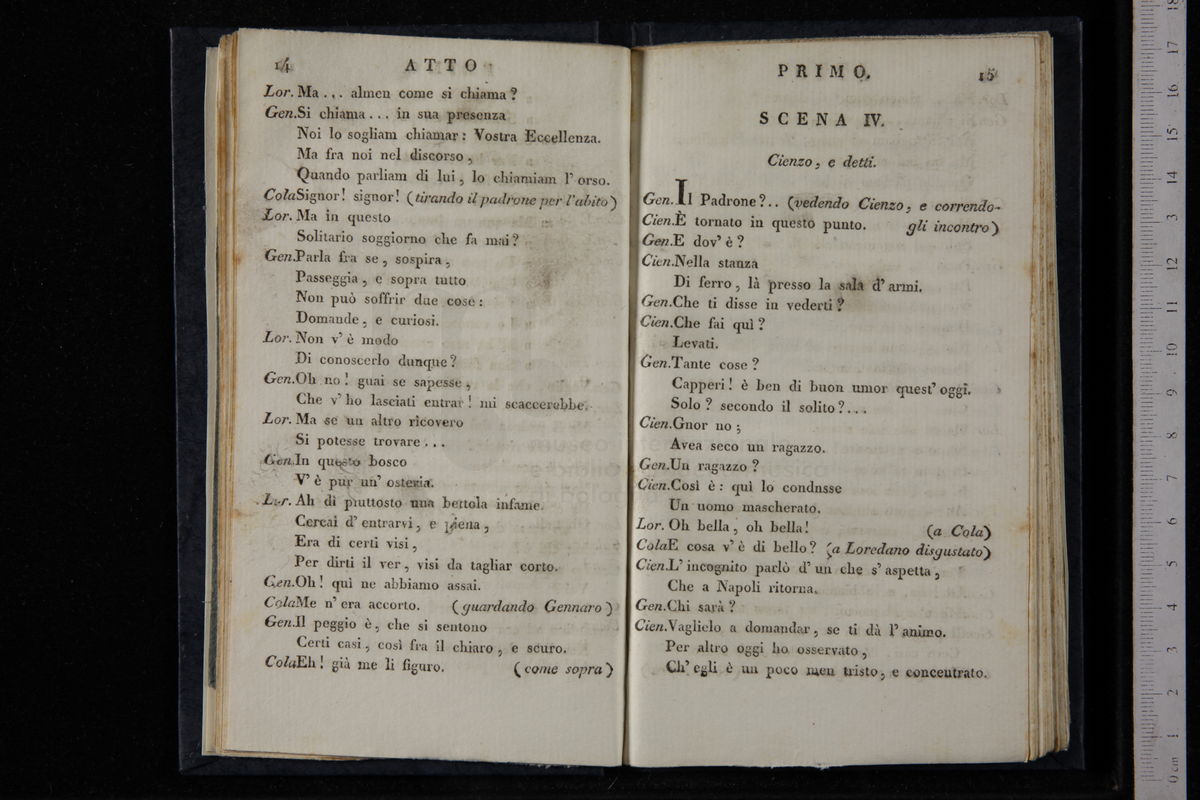 14 ATTO
Lor. Ma ... almen come si chiama?
Gen. Si chiama ... in sua presenza
Noi lo sogliam chiamar: Vostra Eccellenza.
Ma fra noi nel discorso,
Quando parliam di lui, lo chiamiam l' orso.
Cola Signor! signor! (tirando il padrone per l'abito)
Lor. Ma in questo
Solitario soggiorno che fa mai?
Gen. Parla fra se, sospira,
Passeggia, e sopra tutto
Non può soffrir due cose:
Domande, e curiosi.
Lor. Non v' è modo
Di conoscerlo dunque?
Gen. Oh no! guai se sapesse,
Che v' ho lasciati entrar! mi scaccerebbe.
Lor. Ma se un altro ricovero
Si potesse trovare ...
Gen. In questo bosco
V' è pur un' osteria.
Lor. Ah dì piuttosto una bettola infame.
Cercai d' entrarvi, e piena,
Era di certi visi,
Per dirti il ver, visi da tagliar corto.
Gen. Oh! quì ne abbiamo assai.
Cola Me n' era accorto. (guardando Gennaro)
Gen. Il peggio è, che si sentono
Certi casi, così fra il chiaro, e scuro.
Cola Eh! già me li figuro. (come sopra)
PRIMO. 15
SCENA IV.
Cienzo, e detti.
Gen. Il Padrone?.. (vedendo Cienzo, e correndo-
Cien. È tornato in questo punto. gli incontro)
Gen. E dov' è?
Cien. Nella stanza
Di ferro, là presso la sala d' armi.
Gen. Che ti disse in vederti?
Cien. Che fai quì?
Levati.
Gen. Tante cose?
Capperi! è ben di buon umor quest' oggi.
Solo? secondo il solito?...
Cien. Gnor no;
Avea seco un ragazzo.
Gen. Un ragazzo?
Cien. Così è: quì lo condnsse
Un uomo mascherato.
Lor. Oh bella, oh bella! (a Cola)
Cola E cosa v' è di bello? (a Loredano disgustato)
Cien. L' incognito parlò d' un che s' aspetta,
Che a Napoli ritorna.
Gen. Chi sarà?
Cien. Vaglielo a domandar, se ti dà l' animo.
Per altro oggi ho osservato,
Ch' egli è un poco men tristo, e concentrato.
0 cm 1 2 3 4 5 6 7 8 9 10 11 12 3 14 15 16 17 18